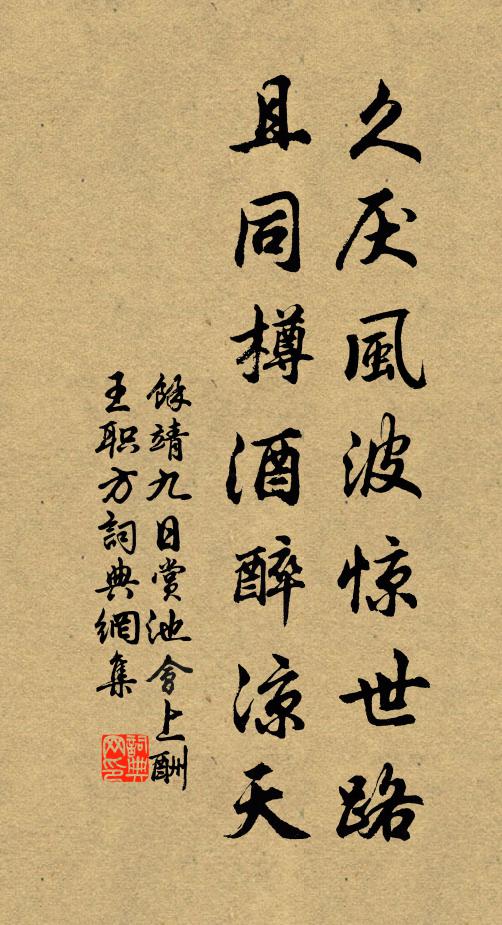 久厌風波惊世路
且同樽酒醉凉天
餘靖九日赏池會上酬
王职方詞典網集
詞典网印